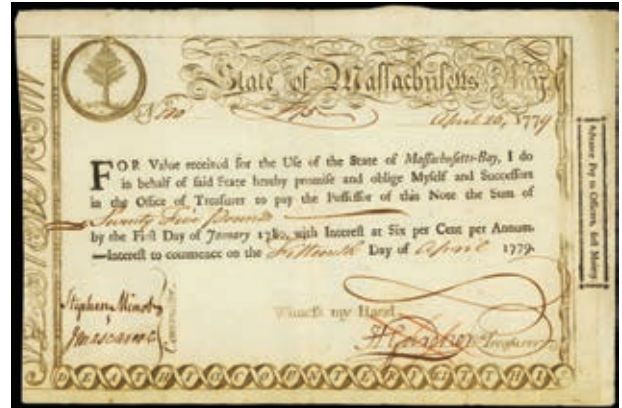 State of Massachusetts Bay,
April 26, 1779
FOR Value received for the Use of the State of Massachusetts-Bay, I do
in behalf of said State hereby promise and oblige Myself and Successors
in the Office of Treasurer to pay the Possessor of this Note the Sum of
Twenty Five Pounds
by the First Day of January 1780, with Interest at Six per Cent per Annum.
—Interest to commence on the Fifteenth Day of April 1779.
Witness my Hand,
Stephen Minot
H Gardner Treasurer
Advance Pay to Officers, first Moiety